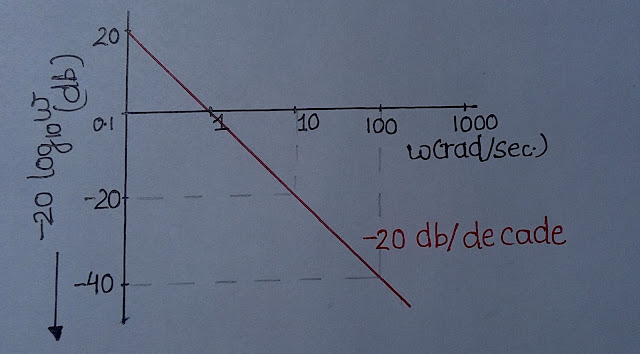 20
-20 log10 w
(db)
0.1
1
10
100
1000
w(rad/sec.)
-20
-20 db/decade
-40